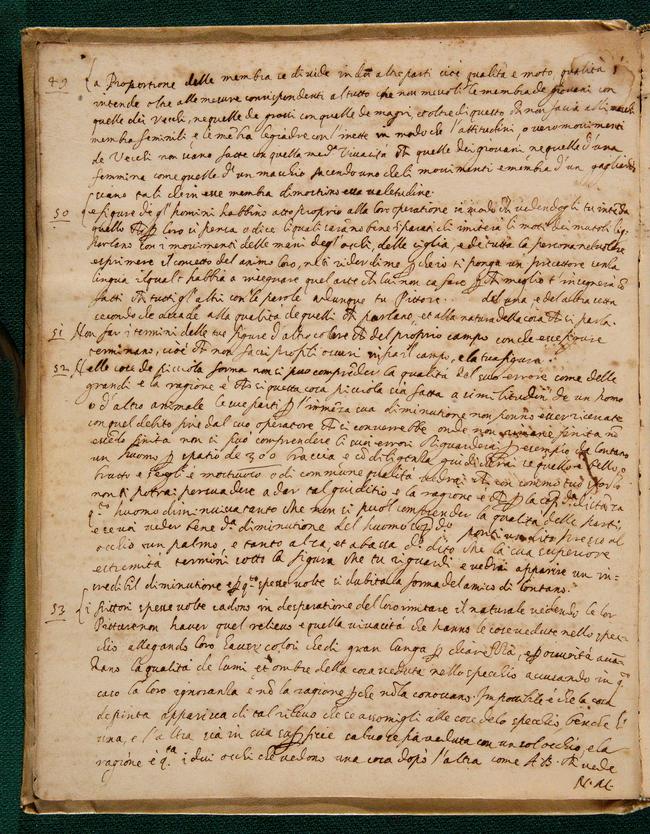 49 La Proportione delle membra se divide in due altre parti cioe qualità e moto, qualità
intende oltre alle mesure corrispondenti al tutto che non mescoli le membra de giovani con
quelle dei Vecchi, ne quelle de grossi con quelle de magri, et oltre di questo che non facia alli maschi
membra feminili,
de Vecchi non siano fatte con quella med.ma Vivacità che quelle dei giovani ne quelle d'una
femmina come quelle d'un maschio facendo che li movimenti e membra d'un gagliardo
siano tali che in esse membra dimostrino essa valetudine.
50 Le figure de gl'homini habbino atto proprio alla loro operatione in modo che vedendogli tu intenda
quello che per loro si pensa o dice li quali saranno bene imparati chi imiterà li moti dei mutoli li quali
parlano con i movimenti delle mani degl'occhi, delle ciglia, e di tutta la persona nel volere
esprimere il concetto del animo loro, ne ti rider di me perche io ti ponga un precettore senza
lingua il quale habbia a insegnare quel arte che lui non sa fare perche meglio t'insegnerà co
fatti che tutti gl'altri con le parole adunque tu Pittore del una, e del altra setta
secondo che accade alla qualità de quelli che parlano, et alla natura della cosa che si parla.
51 Non far i termini delle tue figure d'altro colore che del proprio campo con che esse figure
terminano, cioè che non facci profili oscuri infra il campo, e la tua figura.
52 Nelle cose de piccola forma non si può comprender la qualità del suo errore come delle
grandi e la ragione è che si questa cosa piccola sia fatta a similitudine de un homo
o d'altro animale le sue parti per l'immensa sua diminutione non ponno esser ricercate
con quel debito fine dal suo operatore che si converrebbe onde non rimane finita non
essendo finita non si può comprendere li suoi errori riguarderai per esempio da lontano
un huomo per spatio de 300 braccia e con diligenza giudicherai se quello è bello, o
brutto e s'egli è mostruoso o di commune qualità vedrai che con sommo tuo sforzo
non ti potrai persuadere a dar tal giuditio e la ragione è che per la sopradetta distanza
questo huomo diminuisce tanto che non si può comprender la qualità delle parti,
e se voi veder bene detta diminutione del huomo sopradetto ponti un dito presso al
occhio un palmo, e tanto alza, et abassa detto dito che la sua superiore
estremità termini sotto la figura che tu riguardi e vedrai apparire un in=
credibil diminutione e per questo spesse volte si dubita la forma del amico di lontano.
53 Li Pittori spesse volte cadono in desperatione del loro imitare il naturale vedendo le lor
Pitture non haver quel relievo e quella vivacità che hanno le cose vedute nello spec=
chio allegando loro haver colori che di gran lunga per chiarezza, e per oscurità avan=
zano la qualità de lumi et ombre della cosa veduta nello specchio accusando in questo
caso la loro ignoranza e non la ragione perche non la conoscano. Impossibile è che la cosa
depinta apparisca di tal rilievo che se assomigli alle cose delo specchio benche l'
una, e l'altra sia in sua superficie salvo se fia veduta con un sol occhio, e la
ragione è questa i dui occhi che vedono una cosa dopò l'altra come A. B. che vede
N. M.